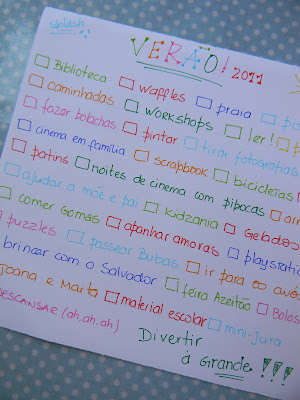 splash...
VERÃO! 2011
Biblioteca waffles praia
caminhadas workshops ler!
fazar bolachas pintar tirar fotografias
cinema em família scrapbook bicicletas
patins noites de cinema com pipocas
ajudar a mãe e pai kidzania gelados
comer gomas apanhar amoras playstation
puzzles passear Bubas ir para os avós
brincar com o Salvador feira Azeitão Bolos
Joana e Marta material escolar mini-Jura
DESCANSAR (ah.ah.ah)
Divertir
à Grande!!!